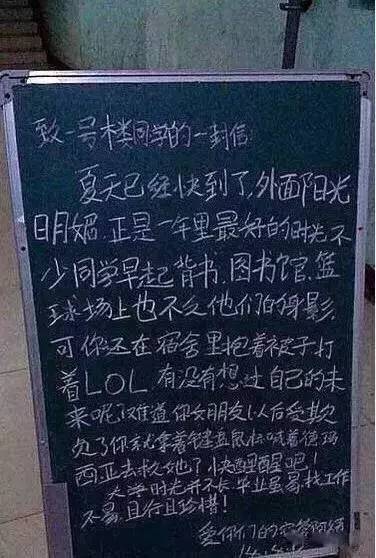 致一号楼同学的一封信:
夏天已经快到了,外面阳光
明媚.正是一年里最好的时光.不
少同学早起背书.图书馆.篮
球场上也不乏他们的身影.
可你还在宿舍里抱着被子打
着LOL 有没有想过自己的未
来呢?难道你女朋友以后受欺
负了你就拿着键盘鼠标喊着德玛
西亚去救她?快醒醒吧!
大学时光并不长 毕业虽易找工作
不易.且行且珍惜!
爱你们的宿管阿姨